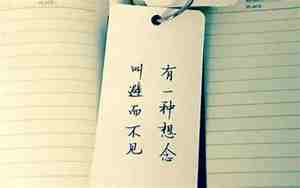 有一种想念
叫避而不见